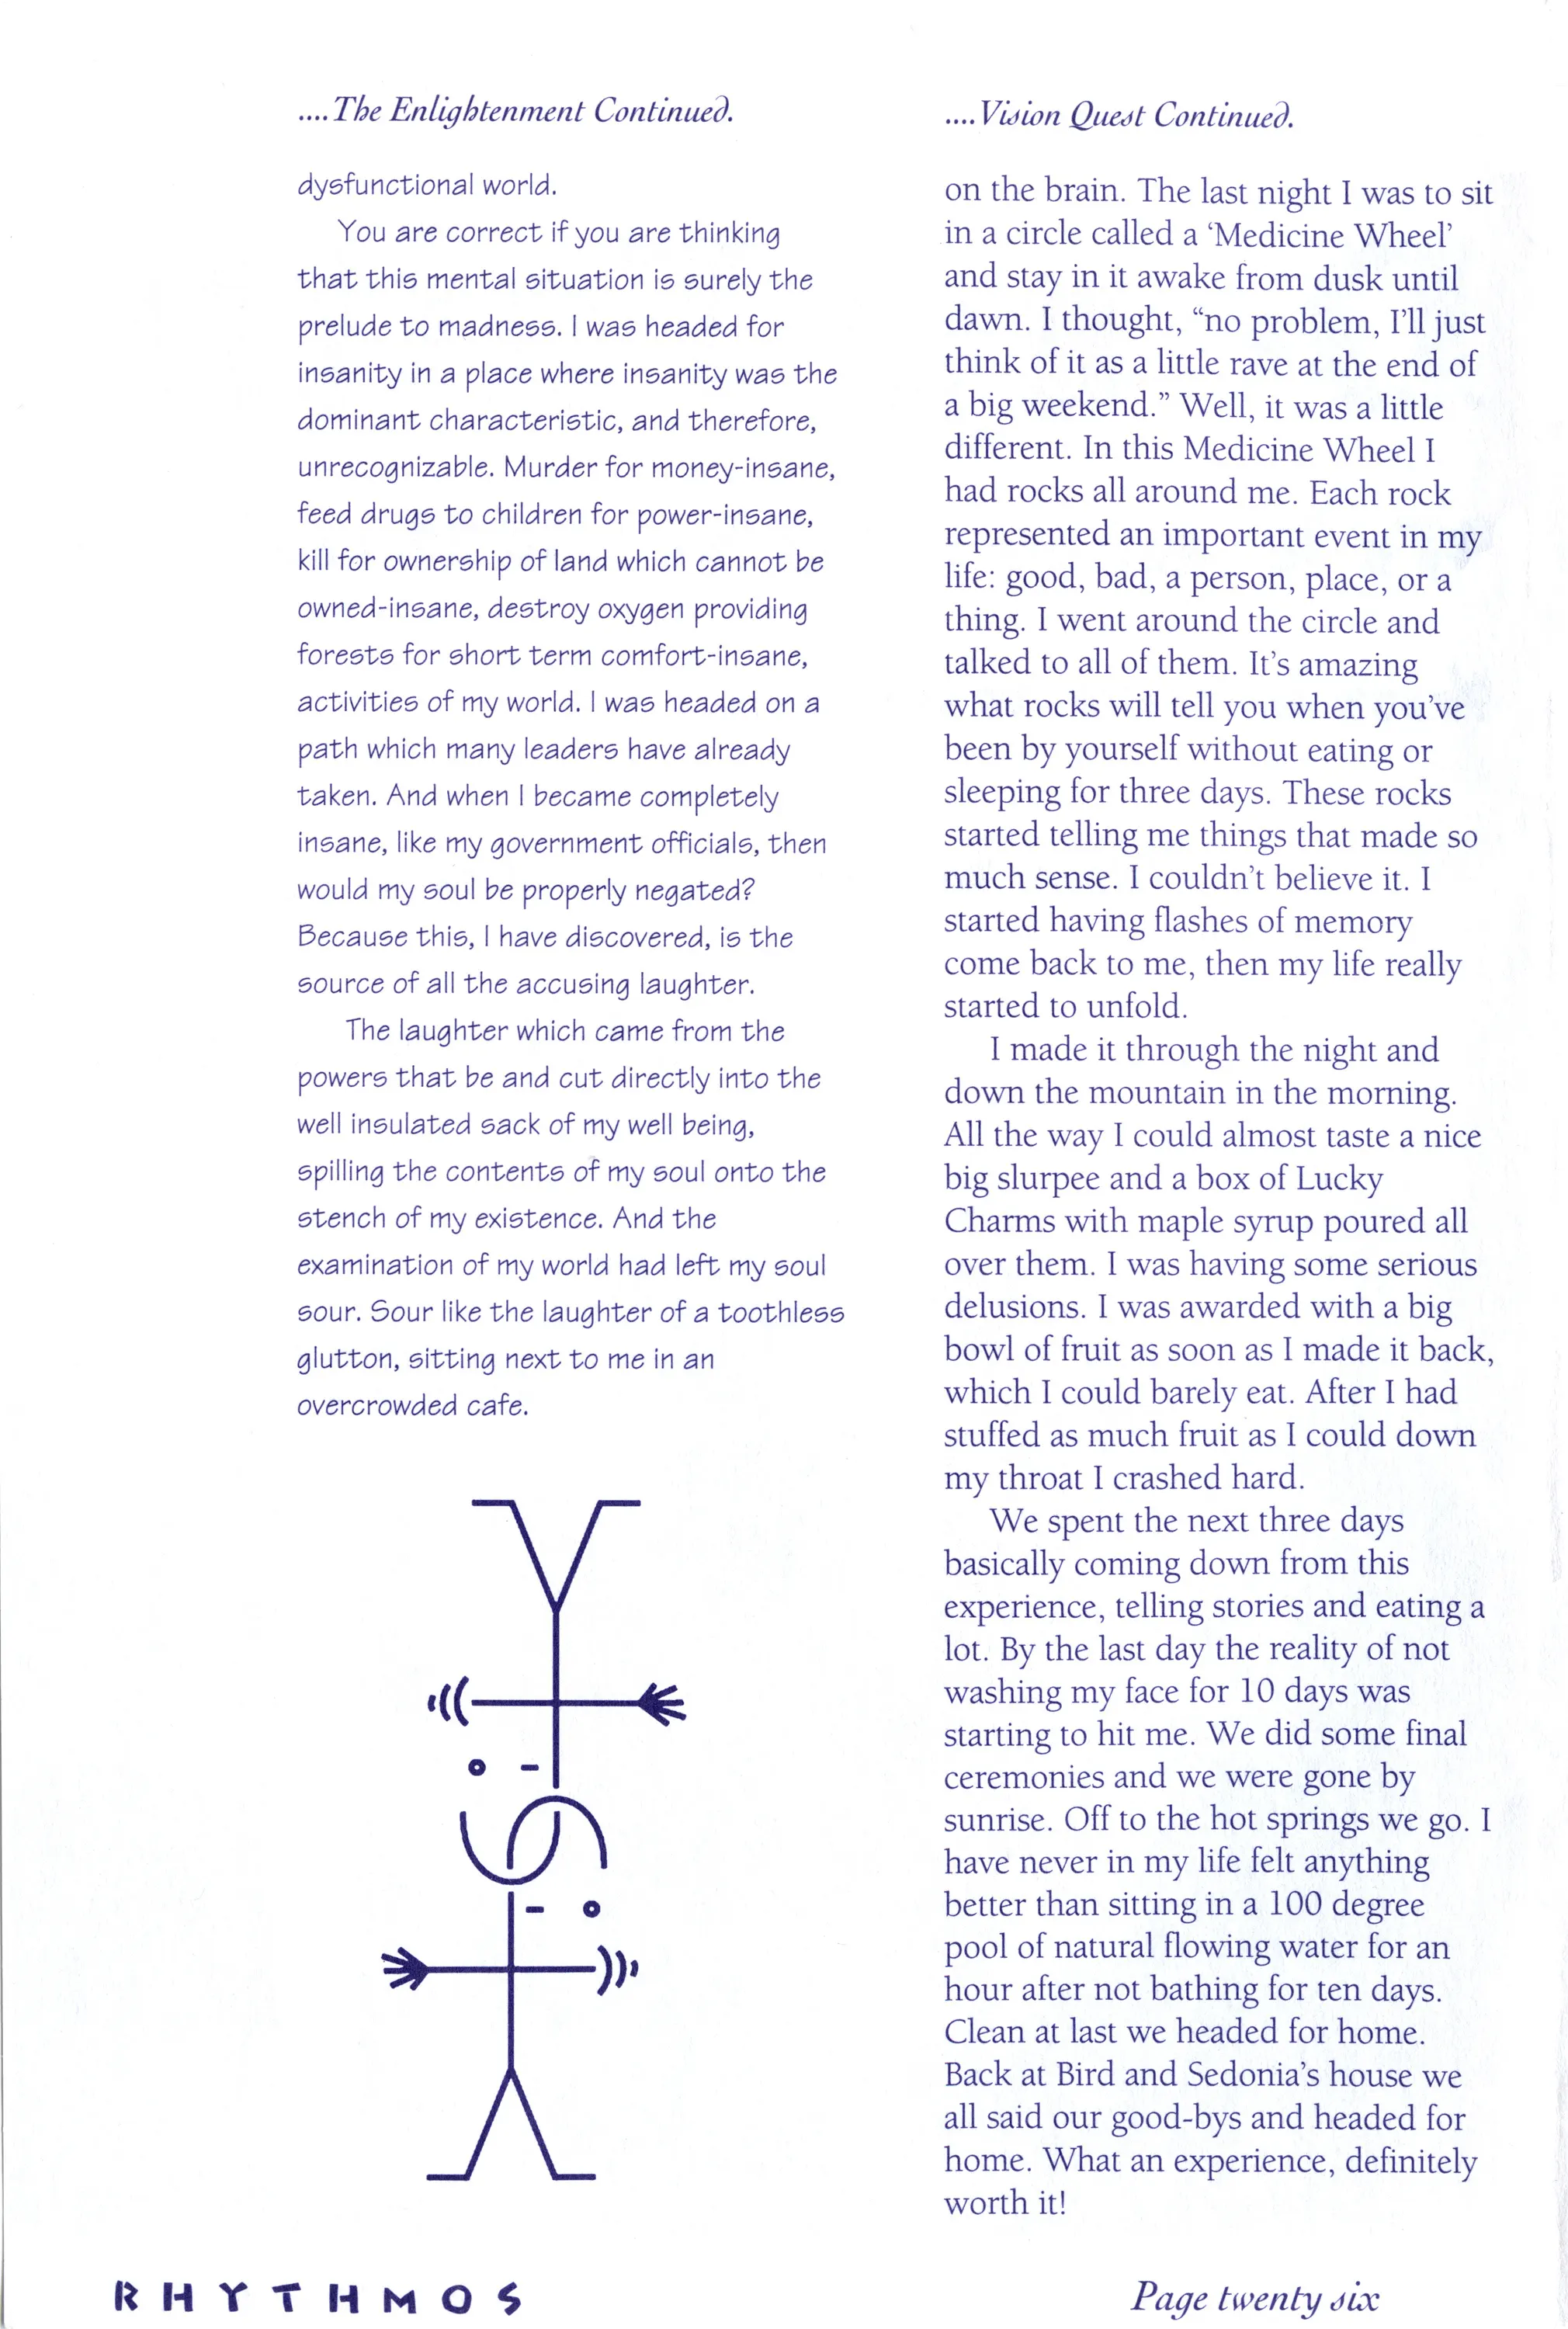 ....The Enlightenment Continued.
dysfunctional world.
You are correct if you are thinking
that this mental situation is surely the
prelude to madness. I was headed for
insanity in a place where insanity was the
dominant characteristic, and therefore,
unrecognizable. Murder for money-insane,
feed drugs to children for power-insane,
kill for ownership of land which cannot be
owned-insane, destroy oxygen providing
forests for short term comfort-insane,
activities of my world. I was headed on a
path which many leaders have already
taken. And when I became completely
insane, like my government officials, then
would my soul be properly negated?
Because this, I have discovered, is the
source of all the accusing laughter.
The laughter which came from the
powers that be and cut directly into the
well insulated sack of my well being,
spilling the contents of my soul onto the
stench of my existence. And the
examination of my world had left my soul
sour. Sour like the laughter of a toothless
glutton, sitting next to me in an
overcrowded cafe.
....Vision Quest Continued.
on the brain. The last night I was to sit
in a circle called a ‘Medicine Wheel’
and stay in it awake from dusk until
dawn. I thought, “no problem, I’ll just
think of it as a little rave at the end of
a big weekend.” Well, it was a little
different. In this Medicine Wheel I
had rocks all around me. Each rock
represented an important event in my
life: good, bad, a person, place, or a
thing. I went around the circle and
talked to all of them. It’s amazing
what rocks will tell you when you’ve
been by yourself without eating or
sleeping for three days. These rocks
started telling me things that made so
much sense. I couldn’t believe it. I
started having flashes of memory
come back to me, then my life really
started to unfold.
I made it through the night and
down the mountain in the morning.
All the way I could almost taste a nice
big slurpee and a box of Lucky
Charms with maple syrup poured all
over them. I was having some serious
delusions. I was awarded with a big
bowl of fruit as soon as I made it back,
which I could barely eat. After I had
stuffed as much fruit as I could down
my throat I crashed hard.
We spent the next three days
basically coming down from this
experience, telling stories and eating a
lot. By the last day the reality of not
washing my face for 10 days was
starting to hit me. We did some final
ceremonies and we were gone by
sunrise. Off to the hot springs we go. I
have never in my life felt anything
better than sitting in a 100 degree
pool of natural flowing water for an
hour after not bathing for ten days.
Clean at last we headed for home.
Back at Bird and Sedonia’s house we
all said our good-bys and headed for
home. What an experience, definitely
worth it!
RHYTHMOS
Page twenty six